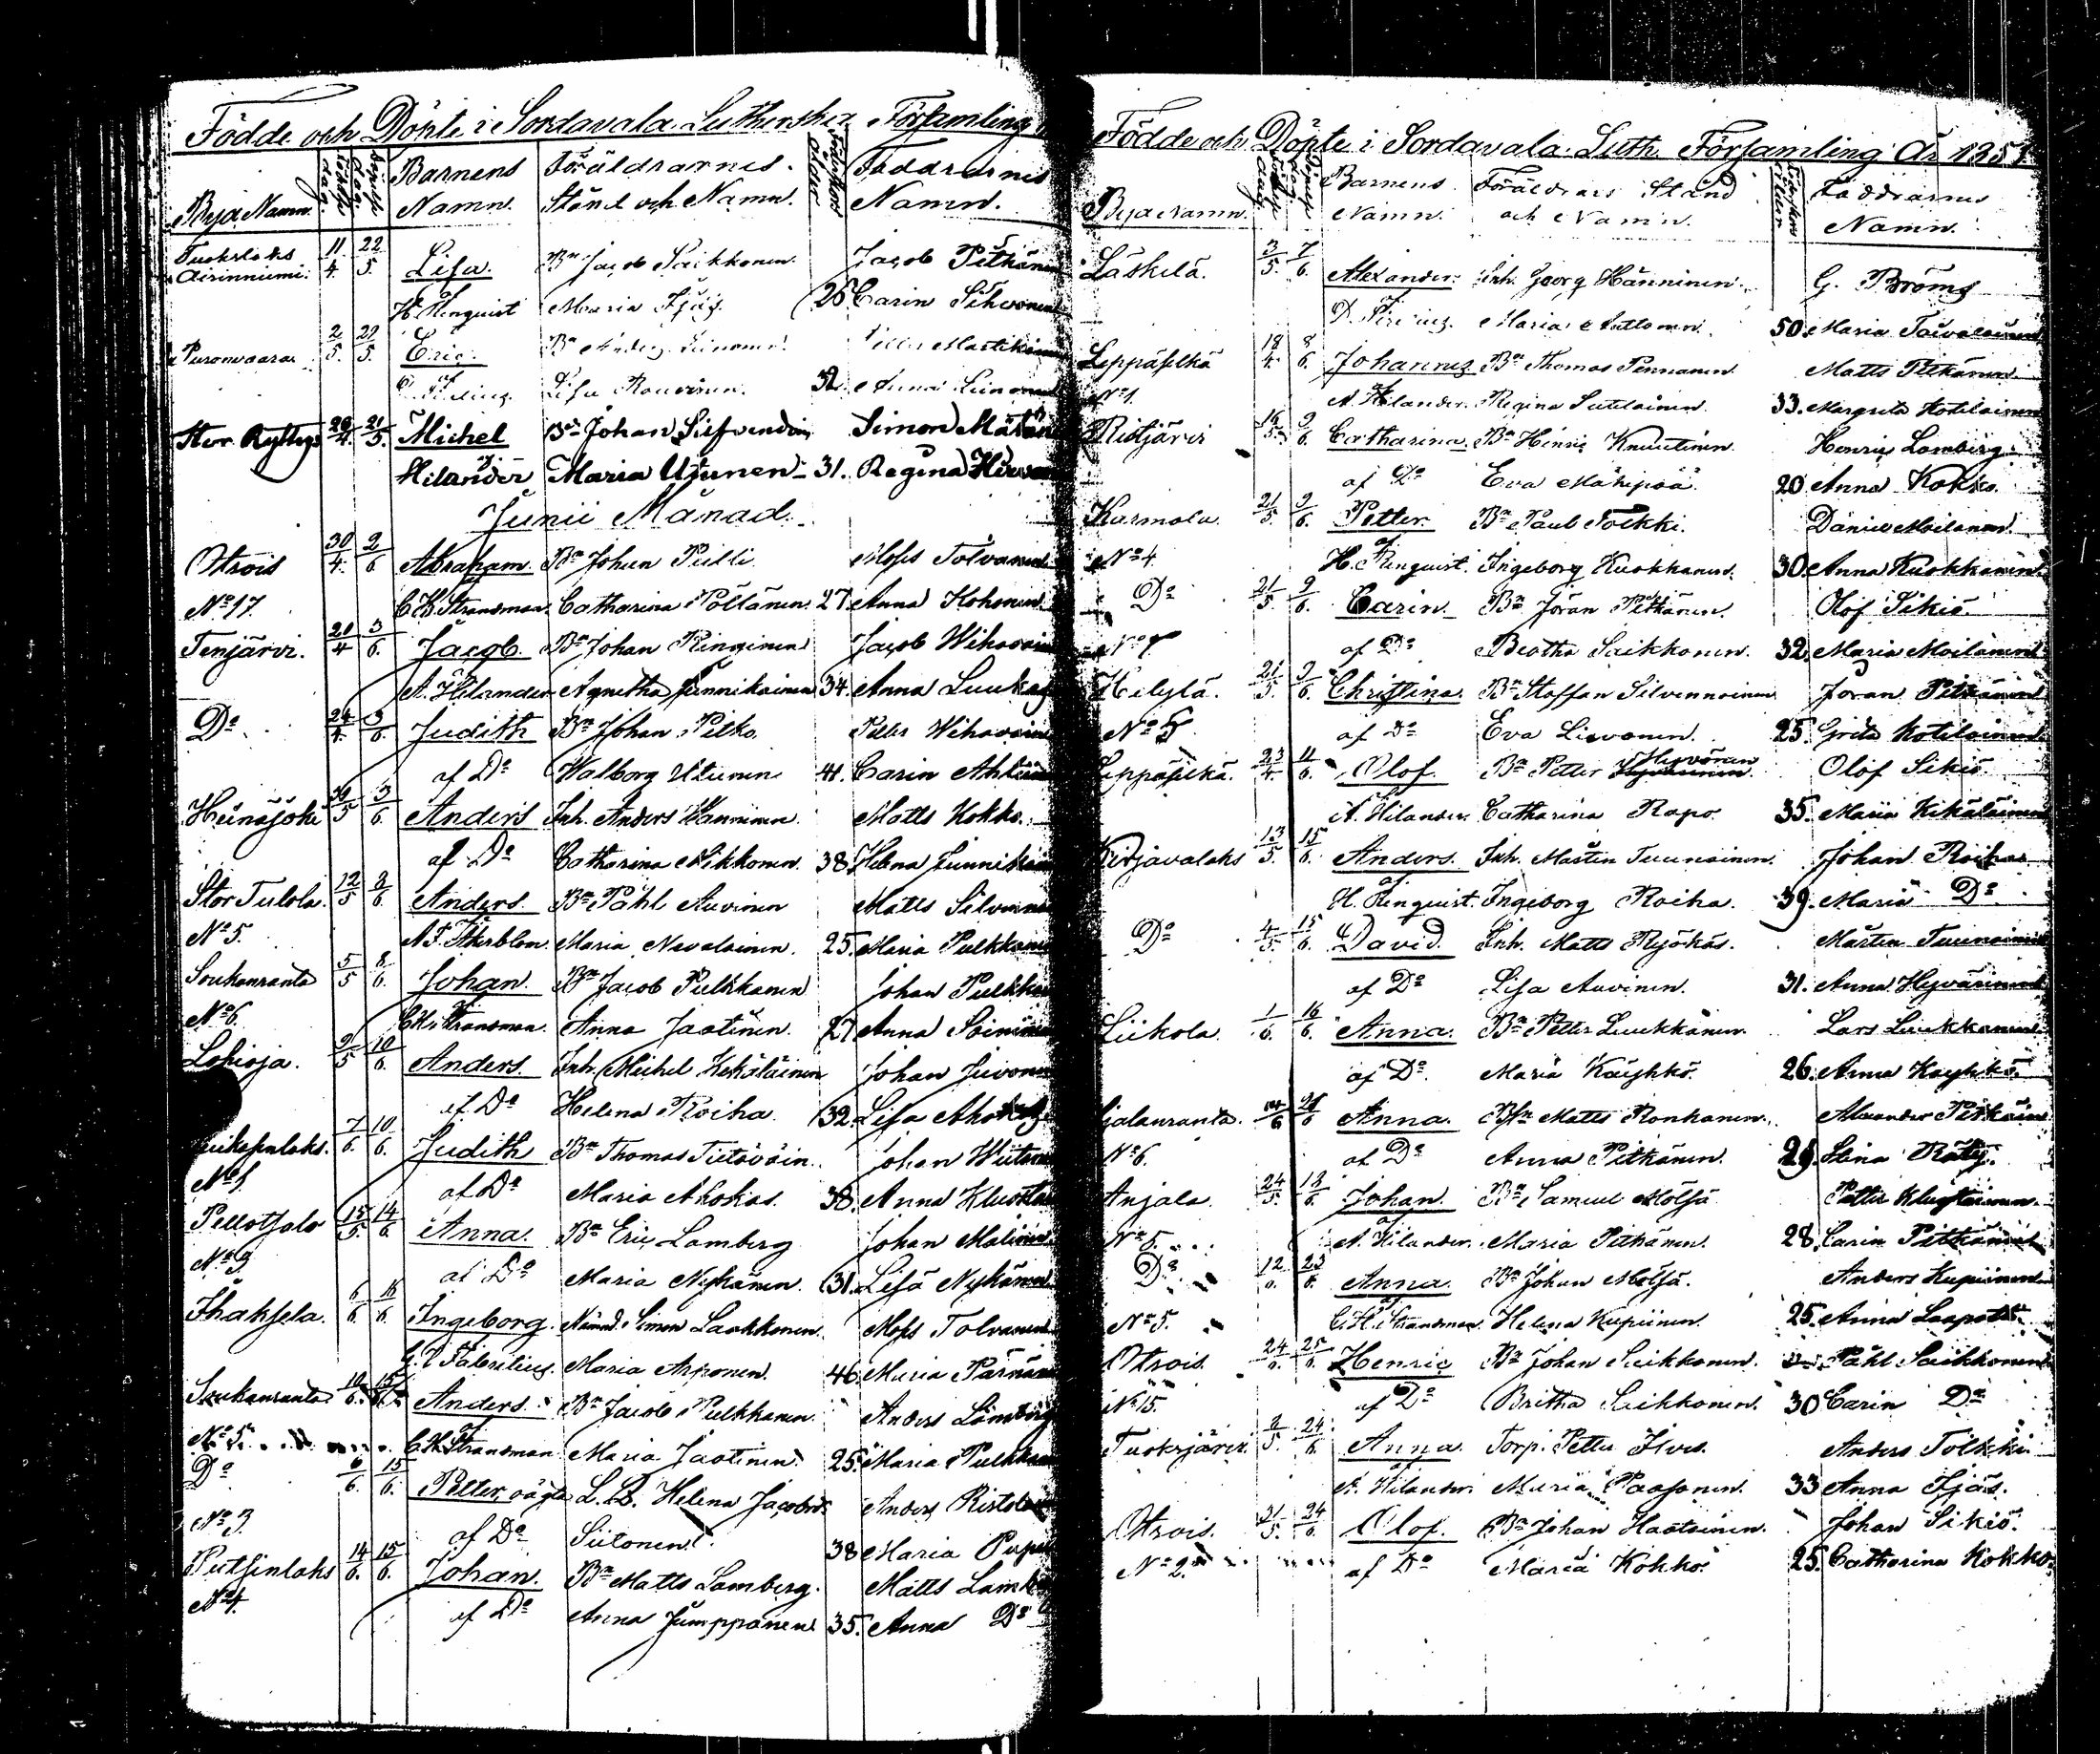 Födde och Döpte i Sordavala Lutherska Församling
Bya Namn. Födelse dag. Döpelse dag. Barnens Namn. Föräldrarnes Stånd och Namn. Moderns Ålder Faddrarnes Namn.
Tuokslaks 11/4. 22/5. Lisa. Bn Jacob Saikkonen. Jacob Pitkänen
Airinniemi. H. Renquist Maria Fjäs. 26 Carin Sihvonen
Puronvaara 2/5. 21/5. Eric. Bn Anders Leinonen Petter Martikainen
Lisa Rouvinen. 32. Anna Leinonen
Herr. Kyttys 20/4. 21/5. Michel Bn Johan Silfvendoin Simon
Hilander Maria Utunen 31. Regina
Junii Månad.
Otsois 30/4. 2/6 Abraham. Bn Johan Pulli. Mosis Tolvanen
No 17. C.H. Strandman. Catharina Pöllänen. 27 Anna Kohonen
Tenjärvi. 21/4 3/6. Jacob. Bn Johan Ringinen Jacob Wihavain
A. Hilander Agnetha Junnikainen 34. Anna Luukas
Do 24/4. 3/6. Judith Bn Johan Pitko. Petter Wihavain
af Do Walborg Utunen 41. Carin
Heinäjoki 30/5 3/6. Anders Inh. Anders Hanninen. Matts Kokko.
af Do Catharina Mikkonen. 38. Helena Junnikain
Stor Tulola. 12/5 8/6 Anders. Bn Påhl Auvinen Matts Silvenn
No 5. A.F. Åkerblom. Maria Nevalainen. 25. Maria Pulkkanen
Soukanranta 5/5 8/6. Johan. Bn Jacob Pulkkanen Johan Pulkka
No 6. C.H. Strandman. Anna Jaatinen. 27 Anna Soininen
Lohioja. 9/5 10/6. Anders. Inh. Michel Kekäläinen Johan Juvonen
af Do Helena Roiha. 32. Lisa Ahokas
7/6. 10/6. Judith Bn Thomas Tietäväin. Johan
No 1. af Do Maria Ahokas. 38. Anna
Pellotsalo 15/5. 14/6 Anna. Bn Eric Lamberg Johan Malinin
No 9. af Do Maria Nykänen. 31. Lisa Nykänen
Ihaksela. 6/6 16/6. Ingeborg. Nämnd. Simon Laakkonen. Mosis Tolvanen
Maria Asponen. 46. Maria Parnänen
Soukanranta 10/6. 15/6. Anders. Bn Jacob Pulkkanen. Anders Lamberg
No 5. C.H. Strandman Maria Jaatinen. 25. Maria Pulkkan
Do 6/6. 15/6. Petter, oägta L.D. Helena Jacobsd. Anders Ristola
No 3. af Do Siitonen. 38 Maria
Putsinlaks 14/6. 15/6. Johan. Bn Matts Lamberg. Matts Lamb
No 4. af Do Anna Jumppanen 35. Anna Do
Födde och Döpte i Sordavala Luth. Församling År 1851
Bya namn. Födelse dag Döpelse dag Barnens Namn. Föräldrars Stånd och Namn. Moderns Ålder Faddrarnes Namn.
Läskelä. 3/5. 7/6. Alexander. Inh. Georg Hänninen. G. Broms
Maria Anttonen. 50. Maria Toivolainen
Leppäselkä 18/4. 8/6. Johannes Bn Thomas Pennanen. Matts Pitkänen.
No 1. A. Hilander. Regina Sutilainen. 33. Margreta Kotilainen
Ristjärvi 16/5. 9/6. Catharina. Bn Henric Knuutinen Henric Lamberg.
af Do Eva Mähipää. 20 Anna Kokko.
Karmola. 21/5. 9/6. Petter. Bn Paul Tolkki. Daniel Moilanen.
No 4 af H. Renquist. Ingeborg Kuokkanen. 30. Anna Kuokkanen.
Do 21/5. 9/6. Carin. Bn Jöran Pitkänen. Olof Sikiö.
af Do Beatha Saikkonen. 32. Maria Moilanen
Helylä. 21/5. 9/6. Christina. Bn Staffan Silvennoinen Jöran Pitkänen
No 5 af Do Eva Lievonen. 25. Greta Kotilainen
Leppäselkä. 23/4. 11/6. Olof. Bn Petter Hyvönen Olof Sikiö
A. Hilander. Catharina Rapo. 35. Maria Kikäläinen
Kirjavalaks 13/5. 15/6. Anders. Inh. Mårten Tuunainen. Johan Roiha
af H. Renquist. Ingeborg Roiha. 39. Maria Do
Do 4/5. 15/6. David. Inh. Matts Ryökäs. Mårten Tuunainen
af Do Lisa Auvinen. 31. Anna Hyvärinen
Liikola. 1/6. 16/6. Anna. Bn Petter Luukkanen. Lars Luukkanen.
af Do. Maria Käyhkö. 26. Anna Käyhkö.
Anna. Bn Matts Ronkanen. Alexander Pitkänen
No 6. af Do Anna Pitkänen. Stina Räty.
Anjala. 24/5. 18/6. Johan. Bn Samuel Mölsä Petter
No 5. af A. Hilander. Maria Pitkänen. 28. Carin Pitkänen
Do 12/6. 23/6. Anna. Bn Johan Mölsä. Anders Kupiinen
No 5. af C.H. Strandman. Helena Kupiinen. 25. Anna
Otsois. 24/6. 25/6. Henric Bn Johan Saikkonen. Påhl Saikkonen
No 15. af Do Britha Saikkonen. 30 Carin Do
Tuoksjärvi. 8/5. 24/6 Anna. Torp. Petter Ilves. Anders Tolkki
A. Hilander. Maria Paasonen. 33 Anna Fjäs.
Otsois. 31/5. 24/6. Olof. Bn Johan Haatainen. Johan Sikiö.
No 2. af Do Maria Kokko. 25. Catharina Kokko.